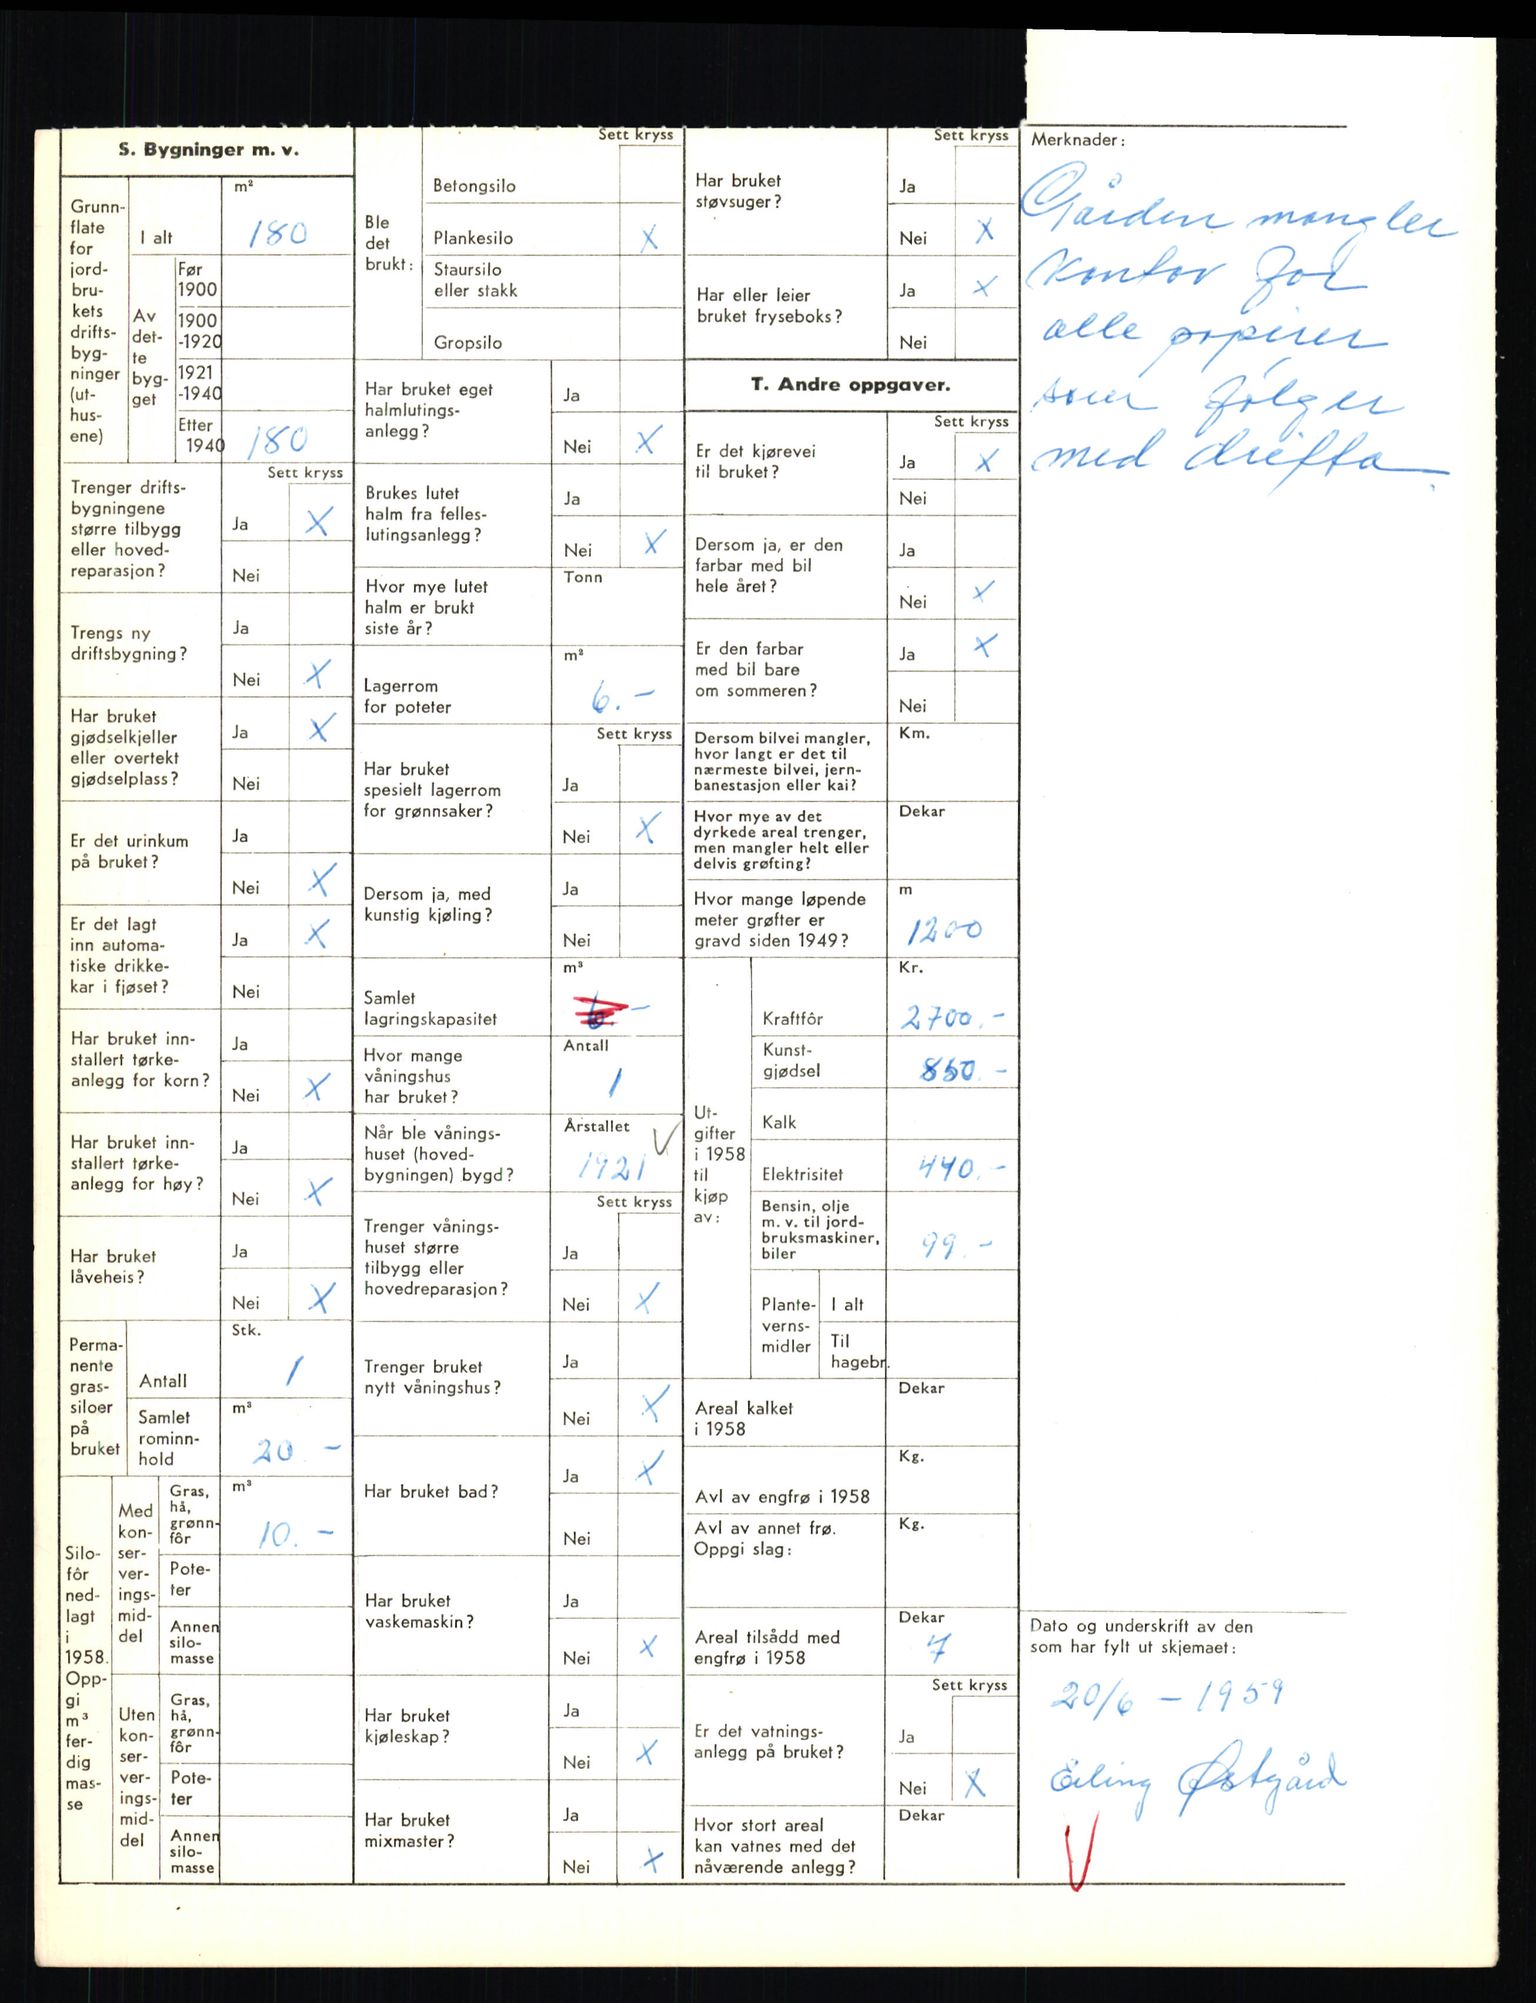 S. Bygninger m. v.
Grunn-
flate
for
jord-
bru-
kets
drifts-
byg-
ninger
(ut-
hus-
ene)
m²
I alt
180
Av
det-
te
byg-
get
Før
1900
1900
-1920
1921
-1940
Etter
1940
180
Sett kryss
Trenger drifts-
bygningene
større tilbygg
eller hoved-
reparasjon?
Ja X
Nei
Trengs ny
driftsbygning?
Ja
Nei X
Har bruket
gjødselkjeller
eller overtekt
gjødselplass?
Ja X
Nei
Er det urinkum
på bruket?
Ja
Nei X
Er det lagt
inn automa-
tiske drikke-
kar i fjøset?
Ja X
Nei
Har bruket inn-
stallert tørke-
anlegg for korn?
Ja
Nei X
Har bruket inn-
stallert tørke-
anlegg for høy?
Ja
Nei X
Har bruket
låveheis?
Ja
Nei X
Perma-
nente
gras-
siloer
på
bruket
Stk.
Antall
1
Samlet
rominn-
hold
m³
20 -
Silo-
fôr
ned-
lagt
i
1958.
Opp-
gi
m³
fer-
dig
mas-
se
Med
kon-
ser-
ver-
ings-
mid-
del
Gras,
hå,
grønn-
fôr
m³
10. -
Pote-
ter
Annen
silo-
masse
Uten
kon-
ser-
ver-
ings-
mid-
del
Gras,
hå,
grønn-
fôr
Pote-
ter
Annen
silo-
masse
Sett kryss
Ble
det
brukt:
Betongsilo
Plankesilo X
Staursilo
eller stakk
Gropsilo
Har bruket eget
halmlutings-
anlegg?
Ja
Nei X
Brukes lutet
halm fra felles-
lutingsanlegg?
Ja
Nei X
Hvor mye lutet
halm er brukt
siste år?
Tonn
Lagerrom
for poteter
m²
6. -
Sett kryss
Har bruket
spesielt lagerrom
for grønnsaker?
Ja
Nei X
Dersom ja, med
kunstig kjøling?
Ja
Nei
Samlet
lagringskapasitet
m³
6. -
Hvor mange
våningshus
har bruket?
Antall
1
Når ble vånings-
huset (hoved-
bygningen) bygd?
Årstallet
1921 V
Sett kryss
Trenger vånings-
huset større
tilbygg eller
hovedreparasjon?
Ja
Nei X
Trenger bruket
nytt våningshus?
Ja
Nei X
Har bruket bad?
Ja X
Nei
Har bruket
vaskemaskin?
Ja
Nei X
Har bruket
kjøleskap?
Ja
Nei X
Har bruket
mixmaster?
Ja
Nei X
Sett kryss
Har bruket
støvsuger?
Ja
Nei X
Har eller leier
bruket fryseboks?
Ja X
Nei
T. Andre oppgaver.
Sett kryss
Er det kjørevei
til bruket?
Ja X
Nei
Dersom ja, er den
farbar med bil
hele året?
Ja
Nei X
Er den farbar
med bil bare
om sommeren?
Ja X
Nei
Dersom bilvei mangler,
hvor langt er det til
nærmeste bilvei, jern-
banestasjon eller kai?
Km.
Hvor mye av det
dyrkede areal trenger,
men mangler helt eller
delvis grøfting?
Dekar
Hvor mange løpende
meter grøfter er
gravd siden 1949?
m
1200
Ut-
gifter
i 1958
til
kjøp
av:
Kr.
Kraftfôr
2700.-
Kunst-
gjødsel
850.-
Kalk
Elektrisitet
440.-
Bensin, olje
m. v. til jord-
bruksmaskiner,
biler
99.-
Plante-
verns-
midler
I alt
Til
hagebr.
Areal kalket
i 1958
Dekar
Avl av engfrø i 1958
Kg.
Avl av annet frø.
Oppgi slag:
Kg.
Areal tilsådd med
engfrø i 1958
Dekar
7
Sett kryss
Er det vatnings-
anlegg på bruket?
Ja
Nei X
Hvor stort areal
kan vatnes med det
nåværende anlegg?
Dekar
Merknader:
Gården mangler
kontor for
alle papirer
som følger
med drifta.
Dato og underskrift av den
som har fylt ut skjemaet:
20/6 - 1959
Eiling Østgård
V